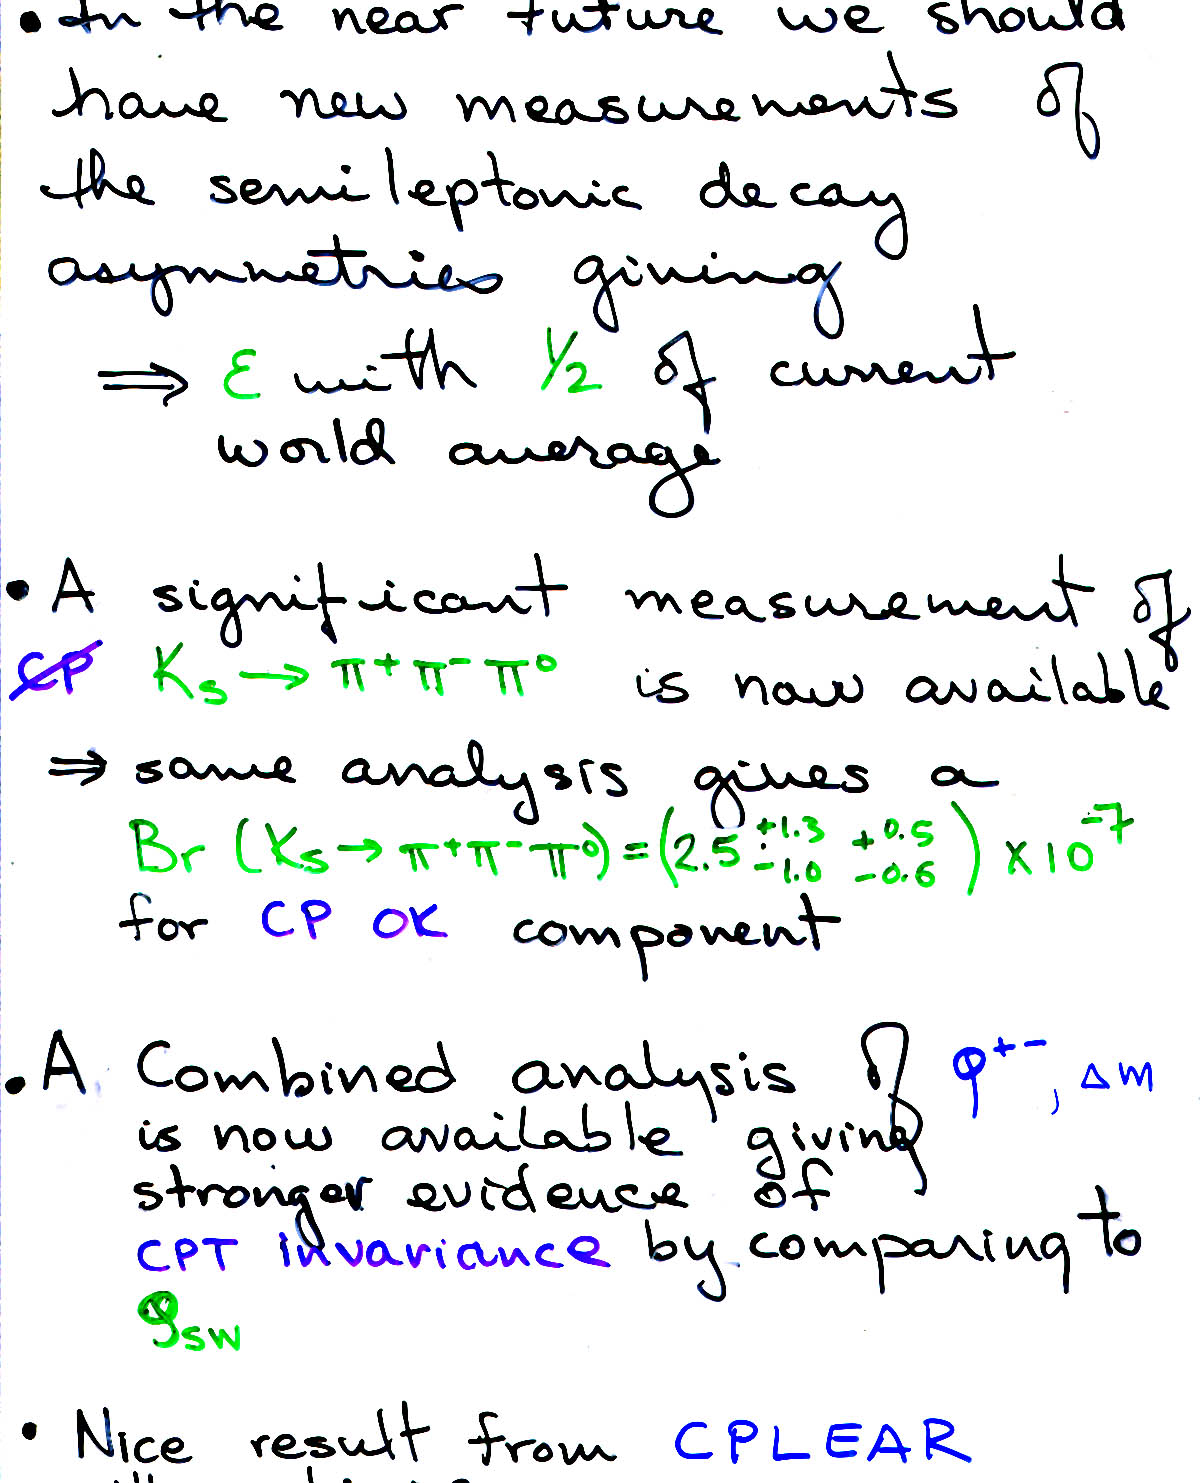 • In the near future we should
have new measurements of
the semileptonic decay
asymmetries giving
⇒ ε with 1/2 of current
world average
• A significant measurement of
CP K_S → π⁺π⁻π⁰ is now available
⇒ same analysis gives a
Br (K_S → π⁺π⁻π⁰) = (2.5 +1.3 -1.0 +0.5 -0.6) × 10⁻⁷
for CP OK component
• A Combined analysis of φ⁺⁻, Δm
is now available giving
stronger evidence of
CPT invariance by comparing to
φ_SW
• Nice result from CPLEAR